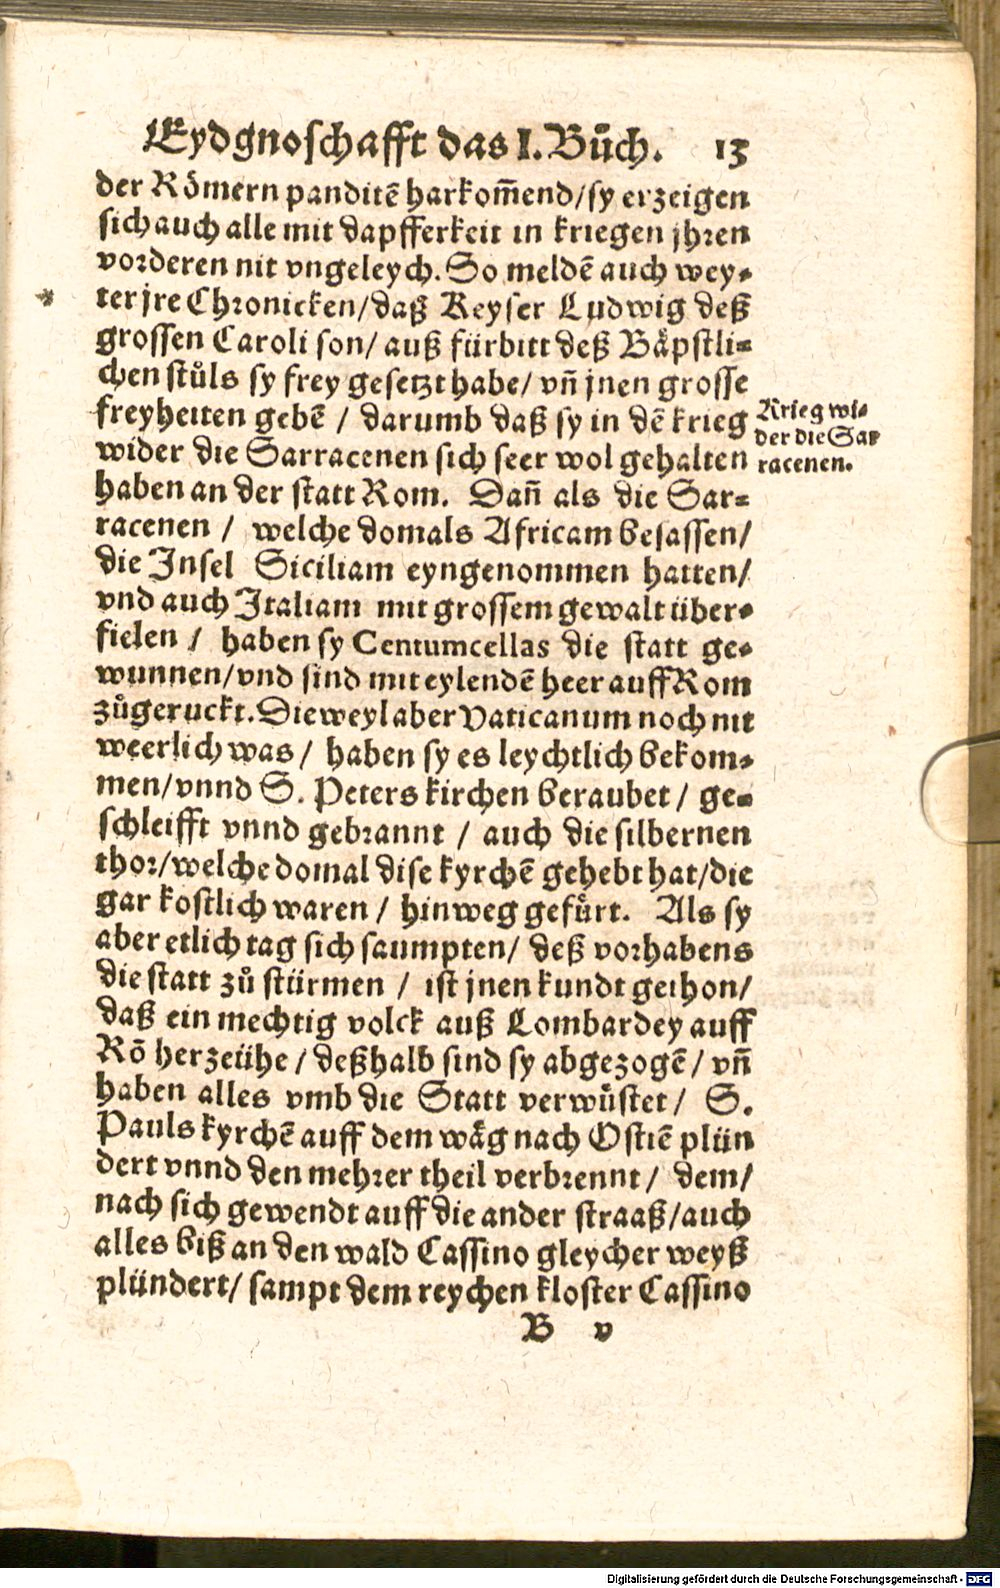 Eydgnoschafft das I. Bůch. 13
der Römern panditē harkom̄end/sy erzeigen
sich auch alle mit dapfferkeit in kriegen jhren
vorderen nit vngeleych. So meldē auch wey⸗
ter jre Chronicken/daß Keyser Ludwig deß
grossen Caroli son/ auß fürbitt deß Bäpstli⸗
chen stůls sy frey gesetzt habe/ vn̄ jnen grosse
freyheiten gebē / darumb daß sy in dē krieg
wider die Sarracenen sich seer wol gehalten
haben an der statt Rom. Dan̄ als die Sar⸗
racenen / welche domals Africam besassen/
die Insel Siciliam eyngenommen hatten/
vnd auch Italiam mit grossem gewalt über⸗
fielen / haben sy Centumcellas die statt ge⸗
wunnen/vnd sind mit eylendē heer auff Rom
zůgeruckt. Dieweyl aber Vaticanum noch nit
weerlich was / haben sy es leychtlich bekom⸗
men/vnnd S. Peters kirchen beraubet / ge⸗
schleifft vnnd gebrannt / auch die silbernen
thor/welche domal dise kyrchē gehebt hat/die
gar kostlich waren / hinweg gefürt. Als sy
aber etlich tag sich saumpten/ deß vorhabens
die statt zů stürmen / ist jnen kundt gethon/
daß ein mechtig volck auß Lombardey auff
Rō herzeühe / deßhalb sind sy abgezogē / vn̄
haben alles vmb die Statt verwüstet / S.
Pauls kyrchē auff dem wäg nach Ostiē plün
dert vnnd den mehrer theil verbrennt / dem/
nach sich gewendt auff die ander straaß/auch
alles biß an den wald Cassino gleycher weyß
plündert/ sampt dem reychen kloster Cassino
B v
Krieg wi⸗
der die Sar
racenen.
Digitalisierung gefördert durch die Deutsche Forschungsgemeinschaft - DFG